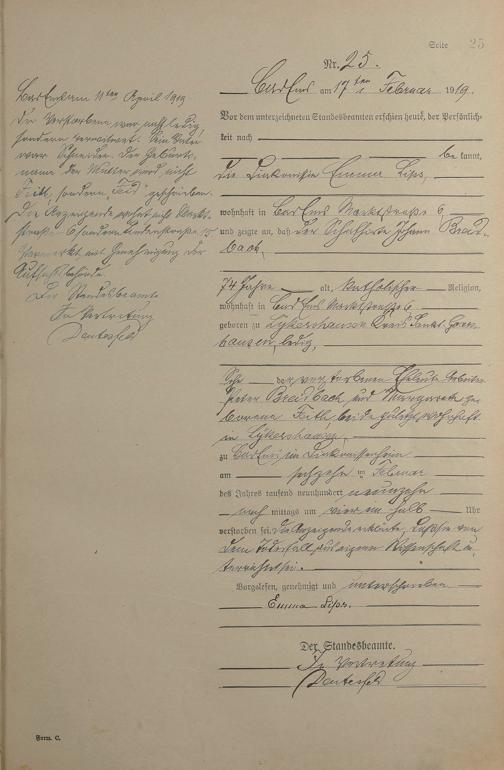 Seite 25
Nr. 25.
Bad Ems am 17ten Februar 1919.
Vor dem unterzeichneten Standesbeamten erschien heute, der Persönlich-
keit nach
be kannt,
die Diakonissin Emma Lips,
wohnhaft in Bad Ems Marktstraße 6
und zeigte an, daß der Johann Breid-
bach,
74 Jahre alt, katholischer Religion,
wohnhaft in Bad Ems Marktstraße 6
geboren zu Lykershausen Kreis Sankt Goars-
hausen, ledig,
Sohn der verstorbenen Eheleute
Peter Breidbach und Margareta ge-
borene Feith, beide zuletzt wohnhaft
in Lykershausen,
zu Bad Ems im Diakonissenheim
am sechzehn ten Februar
des Jahres tausend neunhundert neunzehn
nach mittags um vier ein halb Uhr
verstorben sei. Die Anzeigende erklärte, daß sie von
dem Todesfall aus eigener Wissenschaft un-
terrichtet sei.
Vorgelesen, genehmigt und unterschrieben
Emma Lips.
Der Standesbeamte.
In Vertretung
Bad Ems am 11ten April 1919
Der Verstorbene war nicht ledig,
sondern verwitwet. Sein Vater
war Schneider. Der Geburts-
name der Mutter wird nicht
Feith, sondern "Feid" geschrieben.
Die Anzeigende wohnt nicht Markt-
straße 6 sondern
Vermerkt mit Genehmigung der
Aufsichtsbehörde.
Der Standesbeamte
In Vertretung
Form. C.